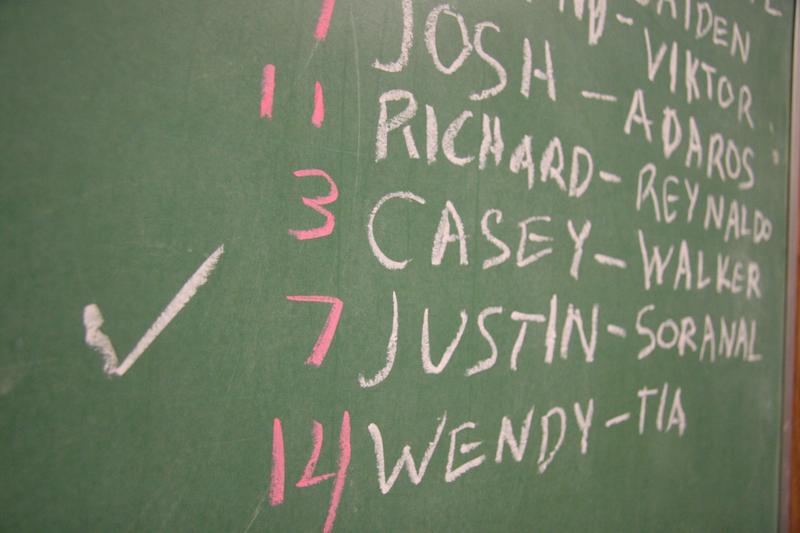 AIDEN
- VIKTOR
JOSH - ADAROS
11 RICHARD - REYNALDO
3 CASEY - WALKER
7 JUSTIN - SORANAL
14 WENDY - TIA